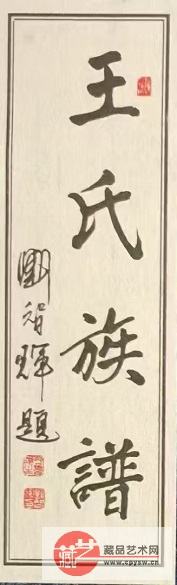 王氏族譜
劉智輝題
藏艺
藏品艺术网
www.cpysw.cn